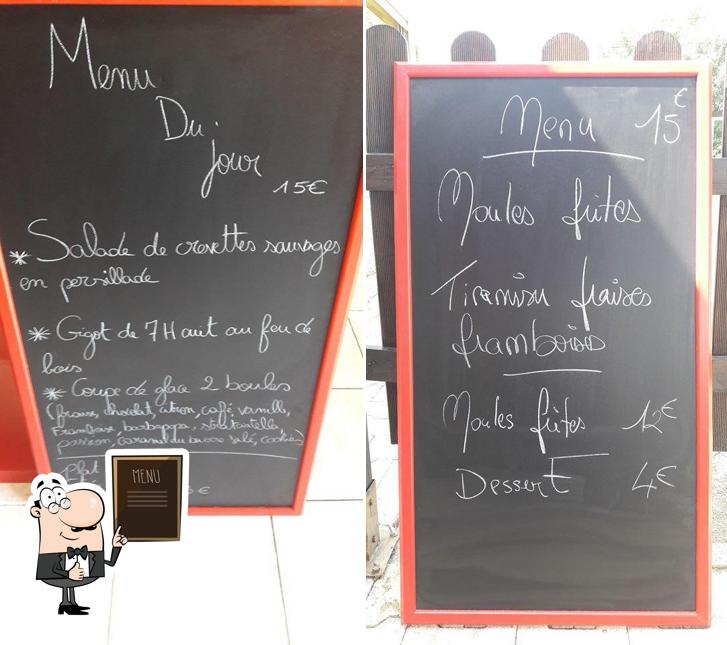 Menu
Du
jour
15€
* Salade de crevettes sauvages
en persillade
* Gigot de 7H cuit au feu de
bois
* Coupe de glace 2 boules
chocolat, citron, café, vanille,
Framboise, barbapapa,
passion, caramel au beurre salé, cookies)
Plat
€
MENU
Menu 15€
Moules frites
Tiramisu fraises
framboises
Moules frites 12€
Dessert 4€